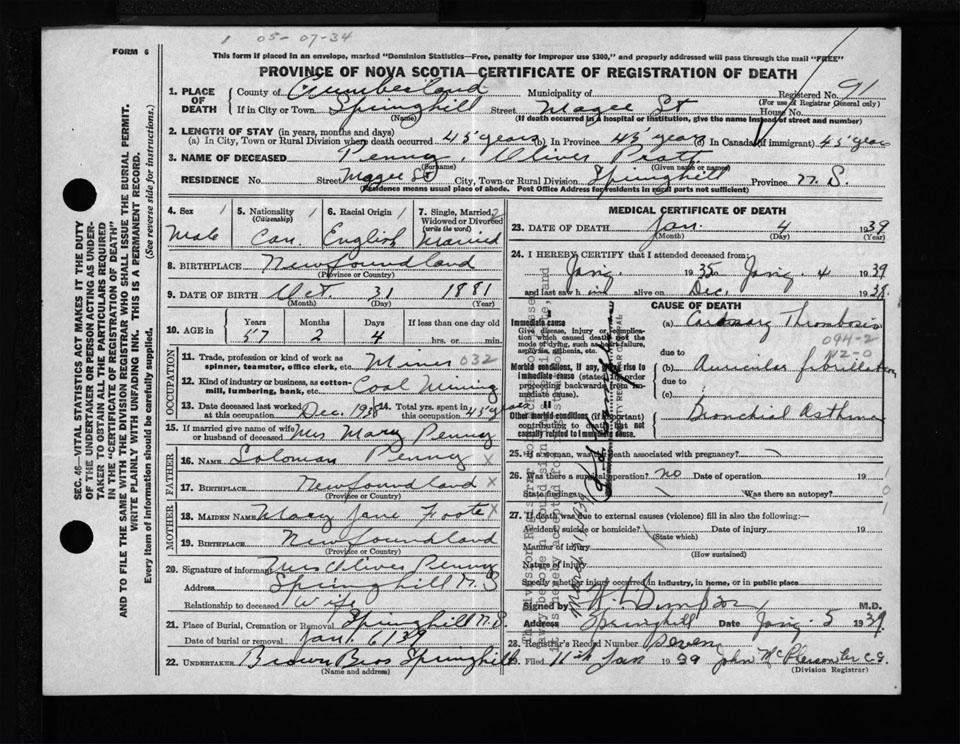 1 05-07-34
FORM 6
This form if placed in an envelope, marked "Dominion Statistics—Free, penalty for improper use $300," and properly addressed will pass through the mail "FREE"
PROVINCE OF NOVA SCOTIA—CERTIFICATE OF REGISTRATION OF DEATH
SEC. 46—VITAL STATISTICS ACT MAKES IT THE DUTY
OF THE UNDERTAKER OR PERSON ACTING AS UNDER-
TAKER TO OBTAIN ALL THE PARTICULARS REQUIRED
IN THE "CERTIFICATE OF REGISTRATION OF DEATH"
AND TO FILE THE SAME WITH THE DIVISION REGISTRAR WHO SHALL ISSUE THE BURIAL PERMIT.
WRITE PLAINLY WITH UNFADING INK. THIS IS A PERMANENT RECORD.
Every item of information should be carefully supplied. (See reverse side for instructions.)
1. PLACE OF DEATH County of Cumberland Municipality of Registered No. 91
(For use of Registrar General only)
If in City or Town Springhill Street Magee St House No.
(Name) (If death occurred in a hospital or institution, give the name instead of street and number)
2. LENGTH OF STAY (in years, months and days)
(a) In City, Town or Rural Division where death occurred 45 years (b) In Province 45 years (c) In Canada (if immigrant) 45 years
3. NAME OF DECEASED Penny, Oliver Pratt
(Surname) (Given name or names)
RESIDENCE No. Street Magee St City, Town or Rural Division Springhill Province N. S.
(Residence means usual place of abode. Post Office Address for residents in rural parts not sufficient)
4. Sex 1 Male
5. Nationality (Citizenship) 1 Can.
6. Racial Origin 1 English
7. Single, Married, Widowed or Divorced (write the word) 2 Married
8. BIRTHPLACE Newfoundland
(Province or Country)
9. DATE OF BIRTH Oct. 31 1881
(Month) (Day) (Year)
10. AGE in Years Months Days If less than one day
57 2 4 hrs. or min.
OCCUPATION
11. Trade, profession or kind of work as spinner, teamster, office clerk, etc. Miner 632
12. Kind of industry or business, as cotton-mill, lumbering, bank, etc. Coal Mining
13. Date deceased last worked at this occupation Dec. 1938 14. Total yrs. spent in this occupation 45 years
15. If married give name of wife or husband of deceased Mrs Mary Penny
FATHER
16. NAME Soloman Penny x
17. BIRTHPLACE Newfoundland x
(Province or Country)
MOTHER
18. MAIDEN NAME Mary Jane Foote x
19. BIRTHPLACE Newfoundland
(Province or Country)
20. Signature of informant Mrs Oliver Penny
Address Springhill N. S
Relationship to deceased Wife
21. Place of Burial, Cremation or Removal Springhill N. S.
Date of burial or removal Jan. 6/39
22. UNDERTAKER Brown Bros Springhill
(Name and address)
MEDICAL CERTIFICATE OF DEATH
23. DATE OF DEATH Jan. 4 1939
(Month) (Day) (Year)
24. I HEREBY CERTIFY that I attended deceased from:
1935 to 4 1939
and last saw h im alive on Dec. 1938.
CAUSE OF DEATH
Immediate cause
Give disease, injury or complication which caused death not the mode of dying, such as heart failure, asphyxia, asthenia, etc.
(a) Coronary Thrombosis
094-2
due to
Morbid conditions, if any, giving rise to immediate cause (stated in order proceeding backwards from immediate cause).
(b) Auricular fibrillation
due to
(c)
Other morbid conditions (if important) contributing to death but not causally related to immediate cause.
Bronchial Asthma
25. If a woman, was the death associated with pregnancy?
26. Was there a surgical operation? no Date of operation 19
State findings Was there an autopsy?
27. If death was due to external causes (violence) fill in also the following:—
Accident, suicide or homicide? Date of injury 19
(State which)
Manner of injury
(How sustained)
Nature of injury
Specify whether injury occurred in industry, in home, or in public place
Signed by M.D.
Address Springhill Date 5 1939.
28. Registrar's Record Number Seven
29. Filed 11th Jan 1939 John McPherson
(Division Registrar)